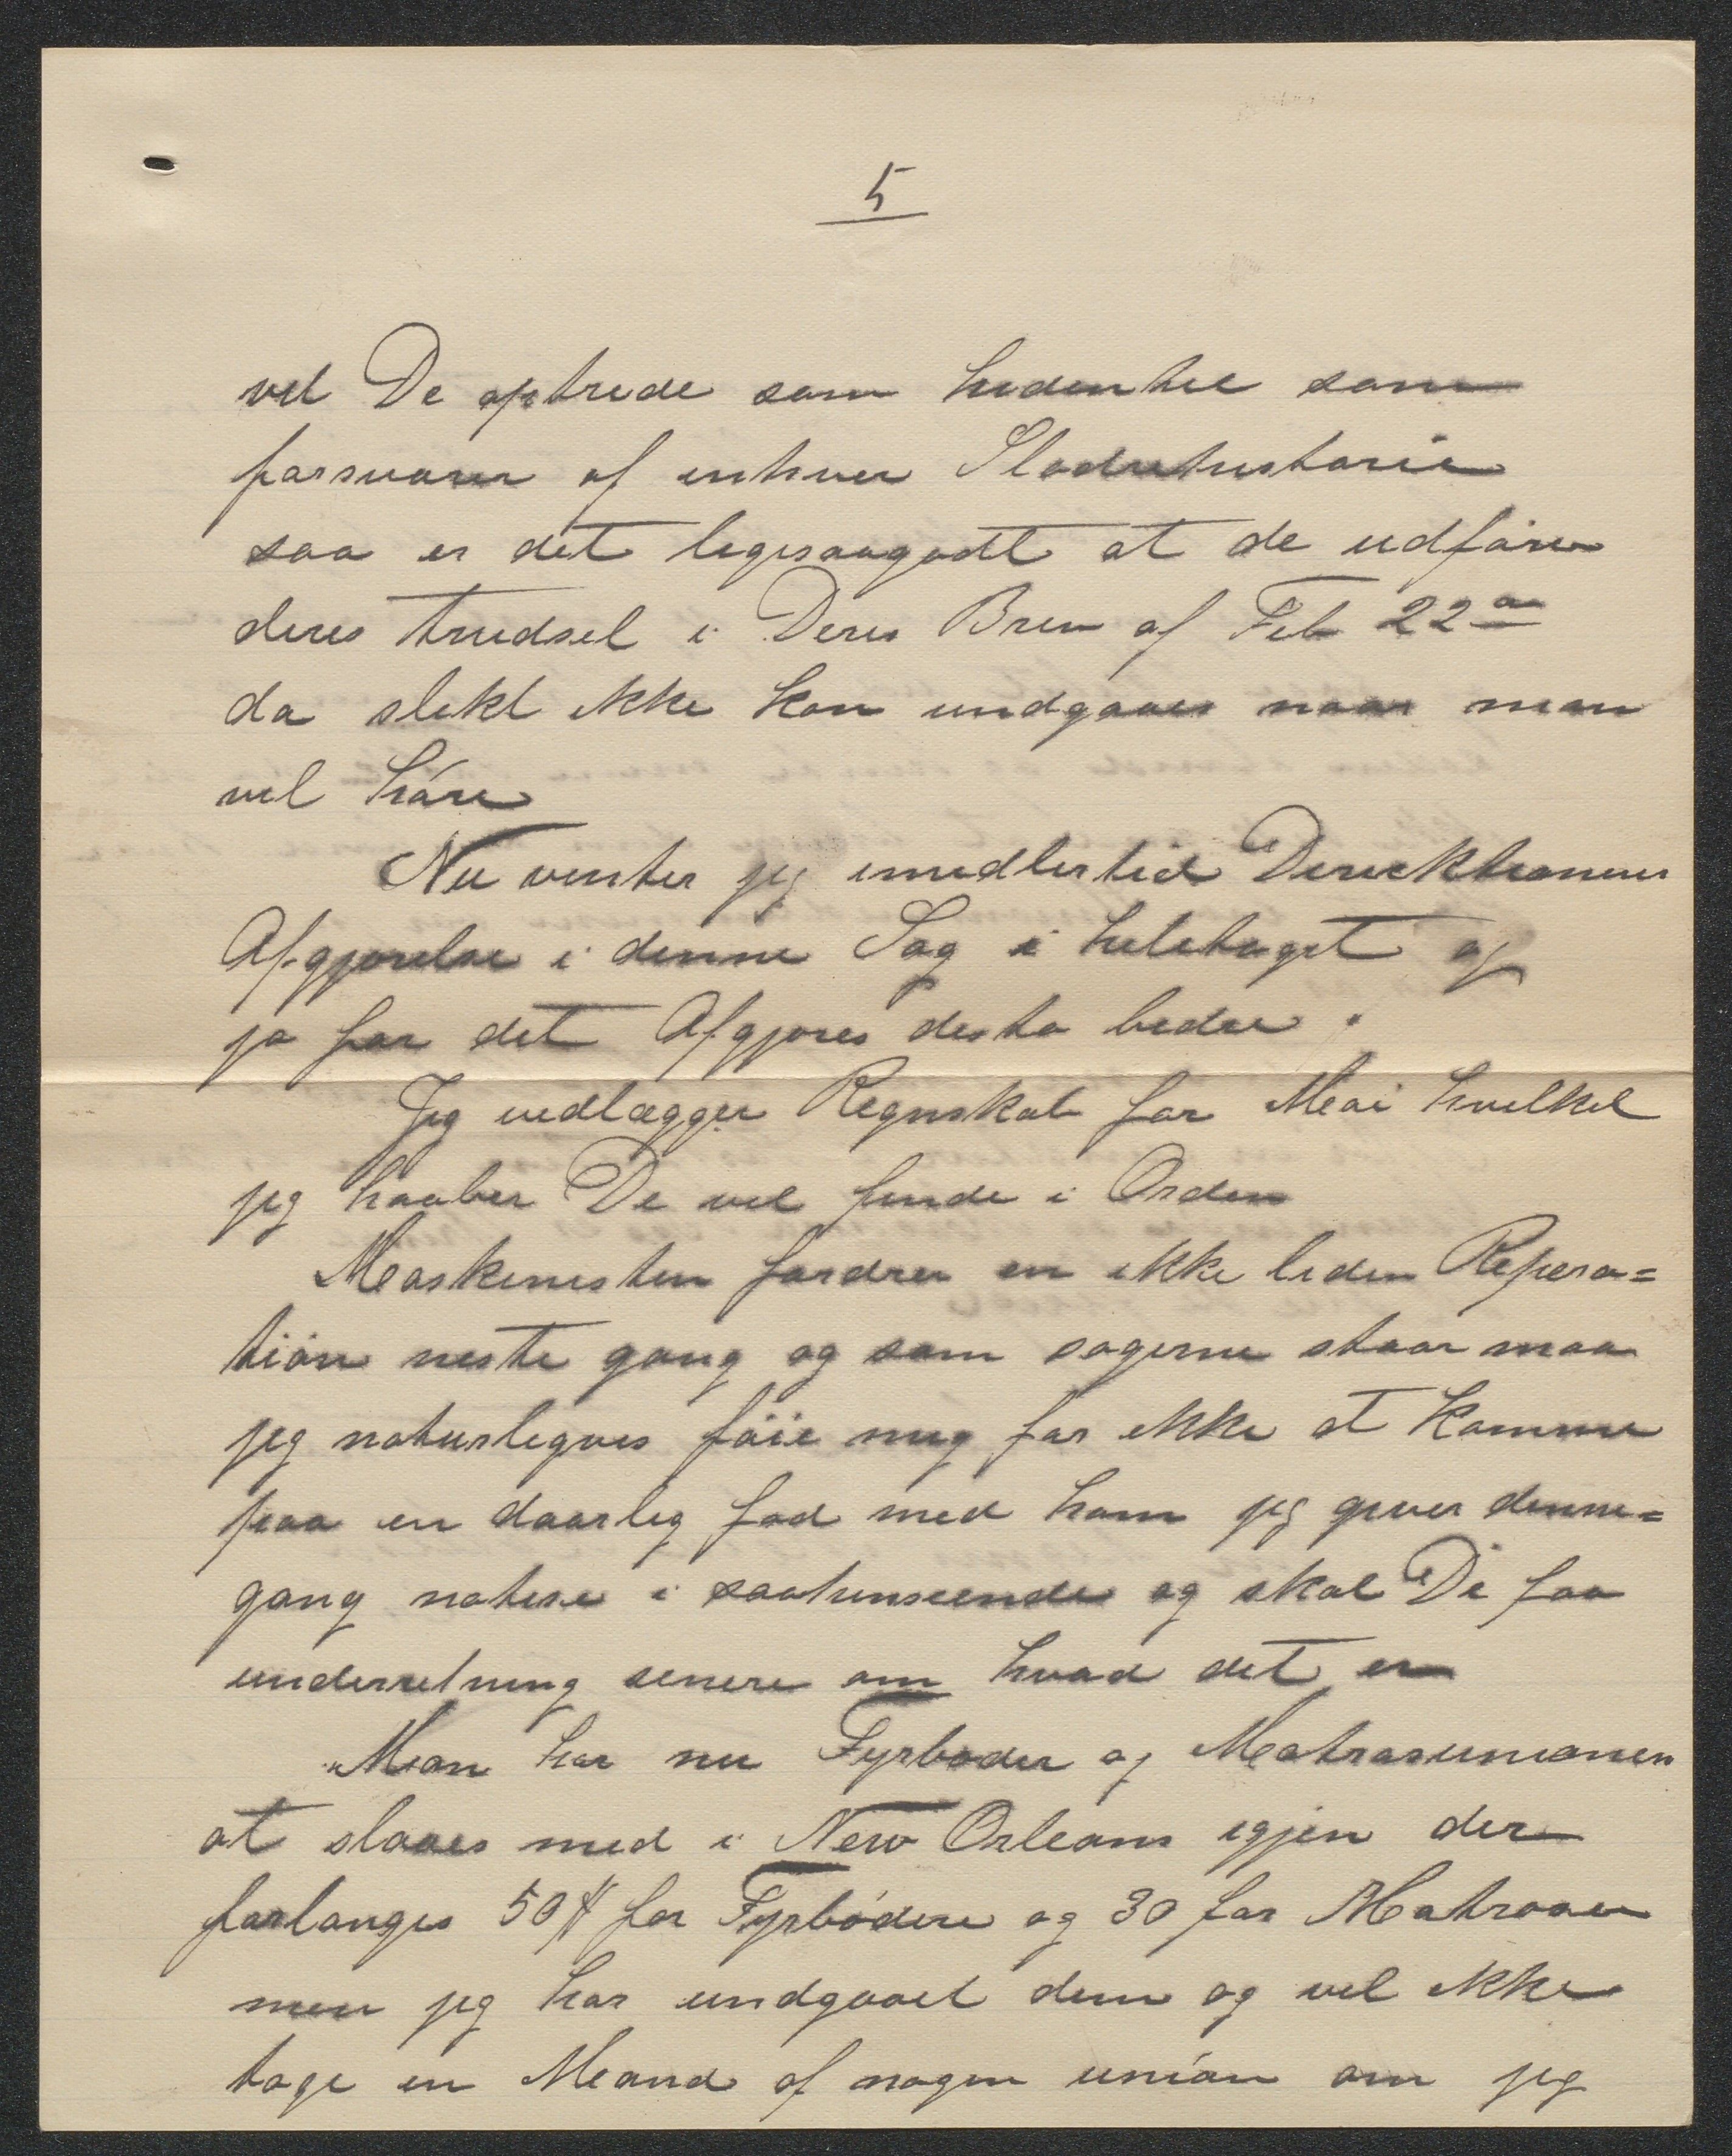 5
vil De optrede som hidentil som
forsvarer af enhver Sladrehistorie
saa er det ligesaagodt at de udfører
deres trudsel i Deres Brev af Feb 22
da slikt ikke kan undgaaes naar man
vil høre
Nu venter jeg imidlertid Direcktionens
Afgjørelse i denne Sag i heletaget og
jo før det Afgjøres desto bedre.
Jeg vedlægger Regnskab for Mai hvilket
jeg haaber De vil finde i Orden
Maskinisten fordrer en ikke liden Repera=
tión neste gang og som sagerne staar maa
jeg naturligvis føie mig for ikke at komme
paa en daarlig fod med ham jeg giver denne=
gang notise i saahenseende og skal De faa
underretning senere om hvad det er
Man har nu Fyrbøder og Matrosunionen
at slaaes med i New Orleans igjen der
forlanges 50$ for Fyrbødere og 30 for Matroser
men jeg har undgaaet dem og vil ikke
tage en Mand af nogen unión om jeg